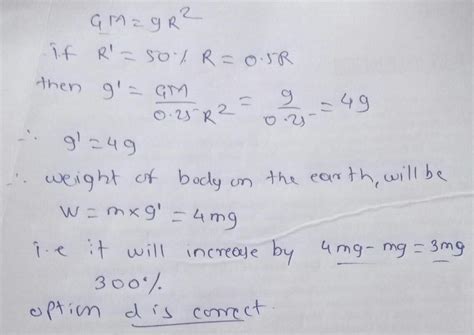 GM = gR²
if R' = 50% R = 0.5R
then g' = GM / 0.25 R² = g / 0.25 = 4g
∴ g' = 4g
∴ weight of body on the earth, will be
W = m×g' = 4mg
i.e it will increase by 4mg-mg = 3mg
300%
option d is correct.